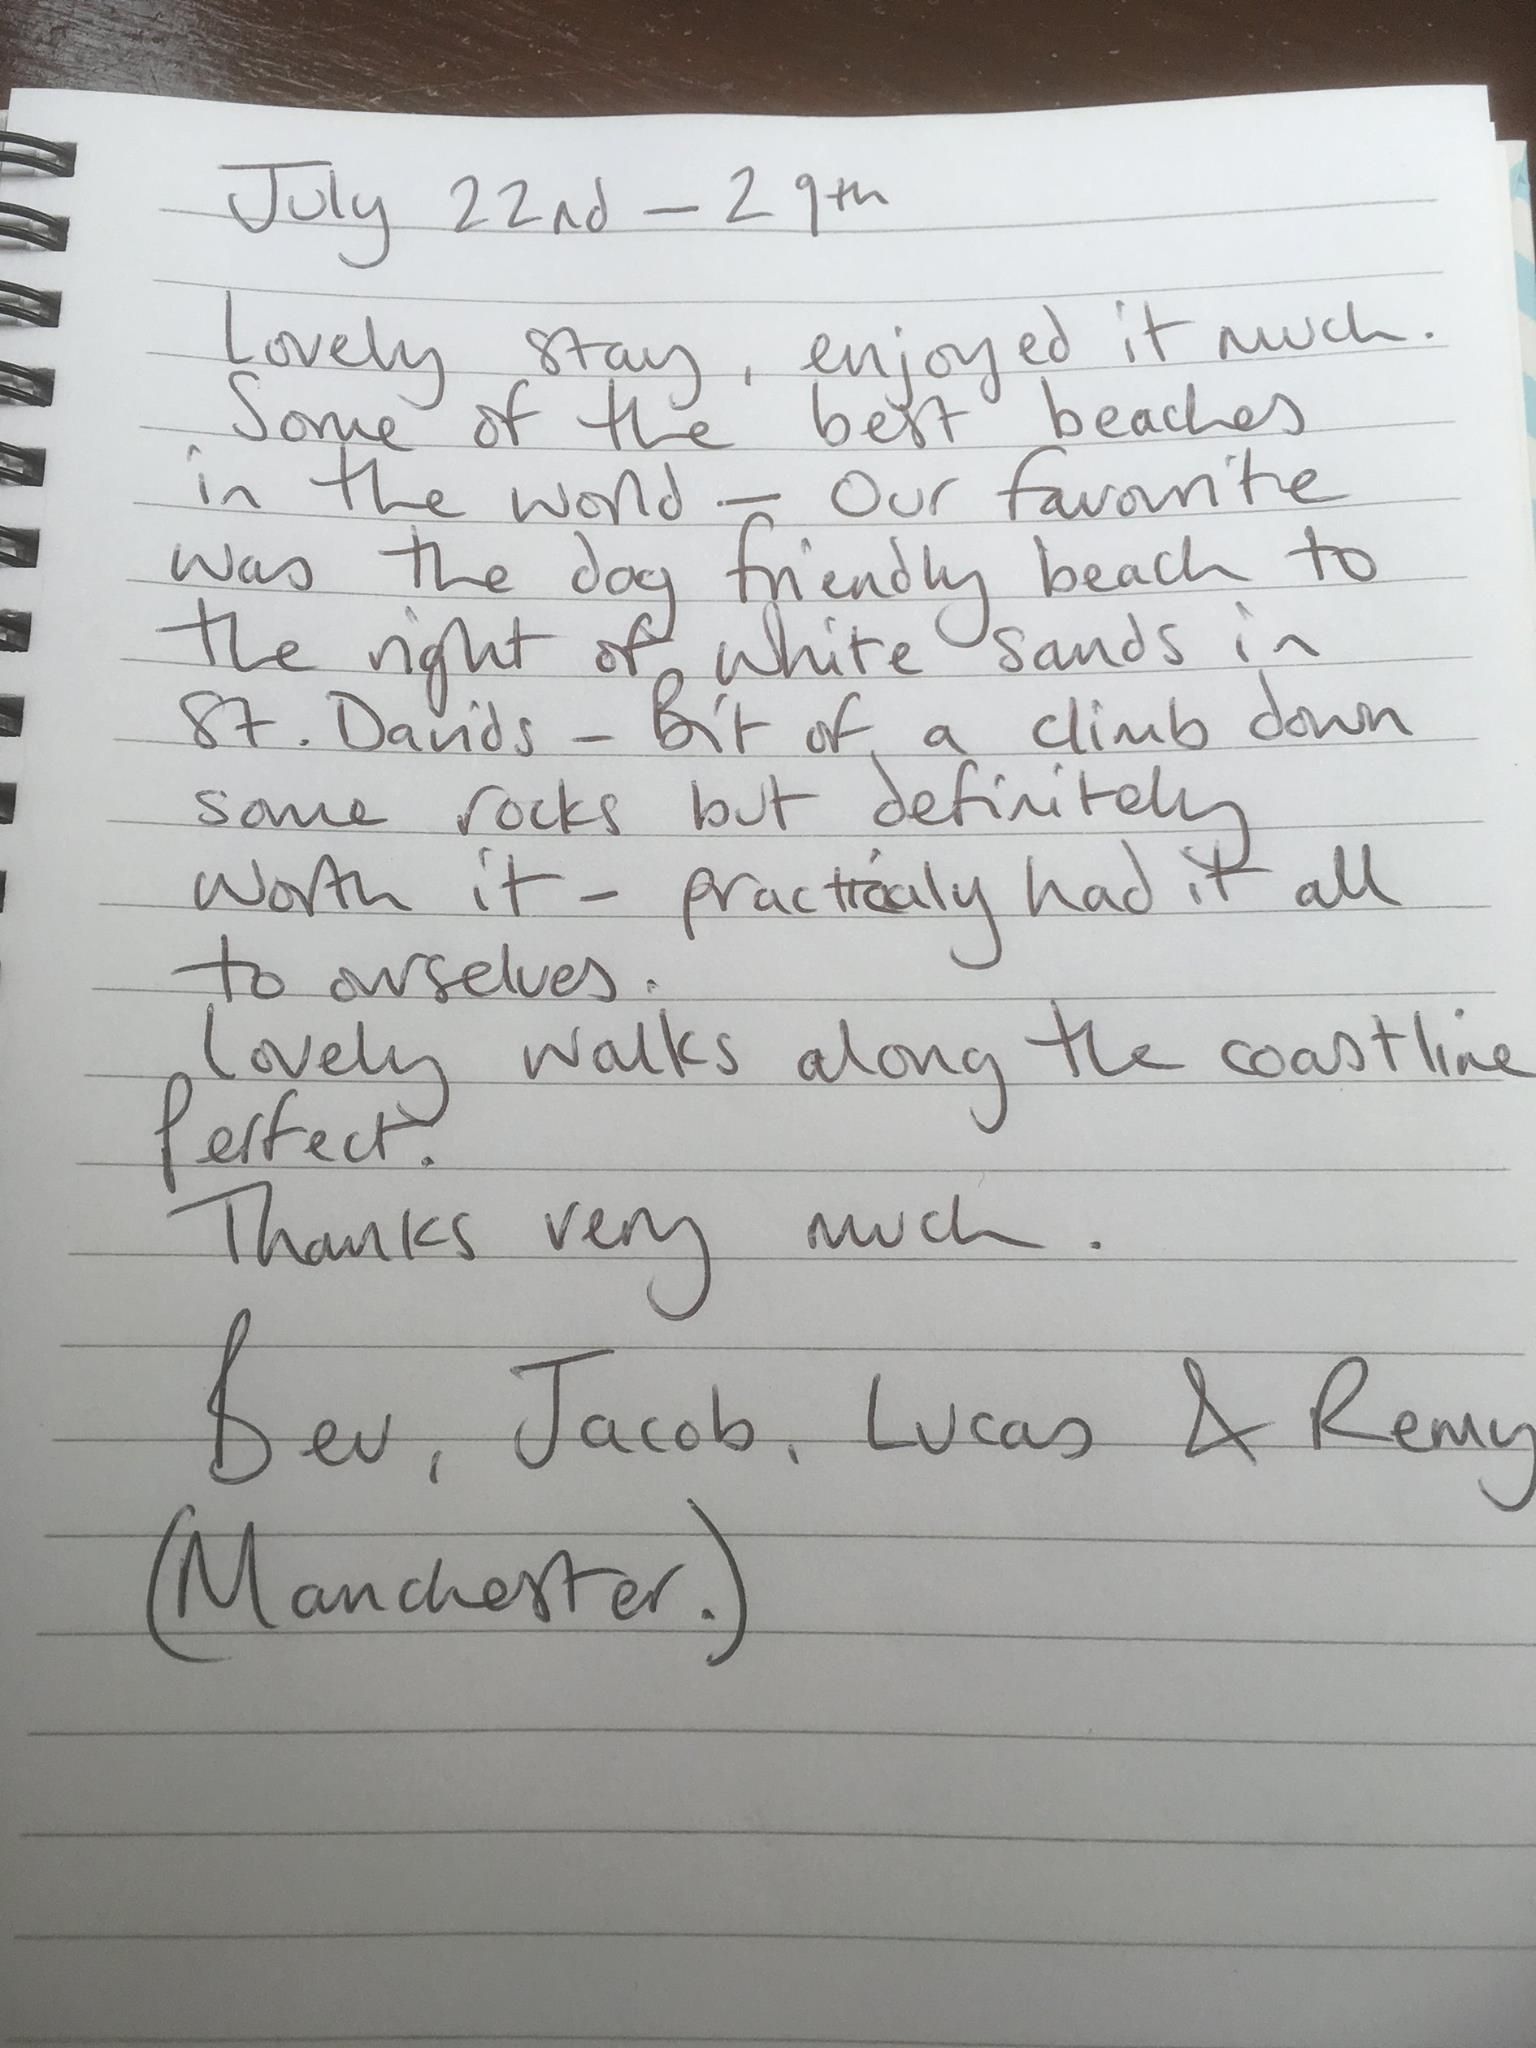 July 22nd - 29th
Lovely stay, enjoyed it much.
Some of the best beaches
in the world - Our favourite
was the dog friendly beach to
the right of White Sands in
St. Davids - Bit of a climb down
some rocks but definitely
worth it - practicaly had it all
to ourselves.
Lovely walks along the coastline
Perfect.
Thanks very much.
Bev, Jacob, Lucas & Remy
(Manchester.)